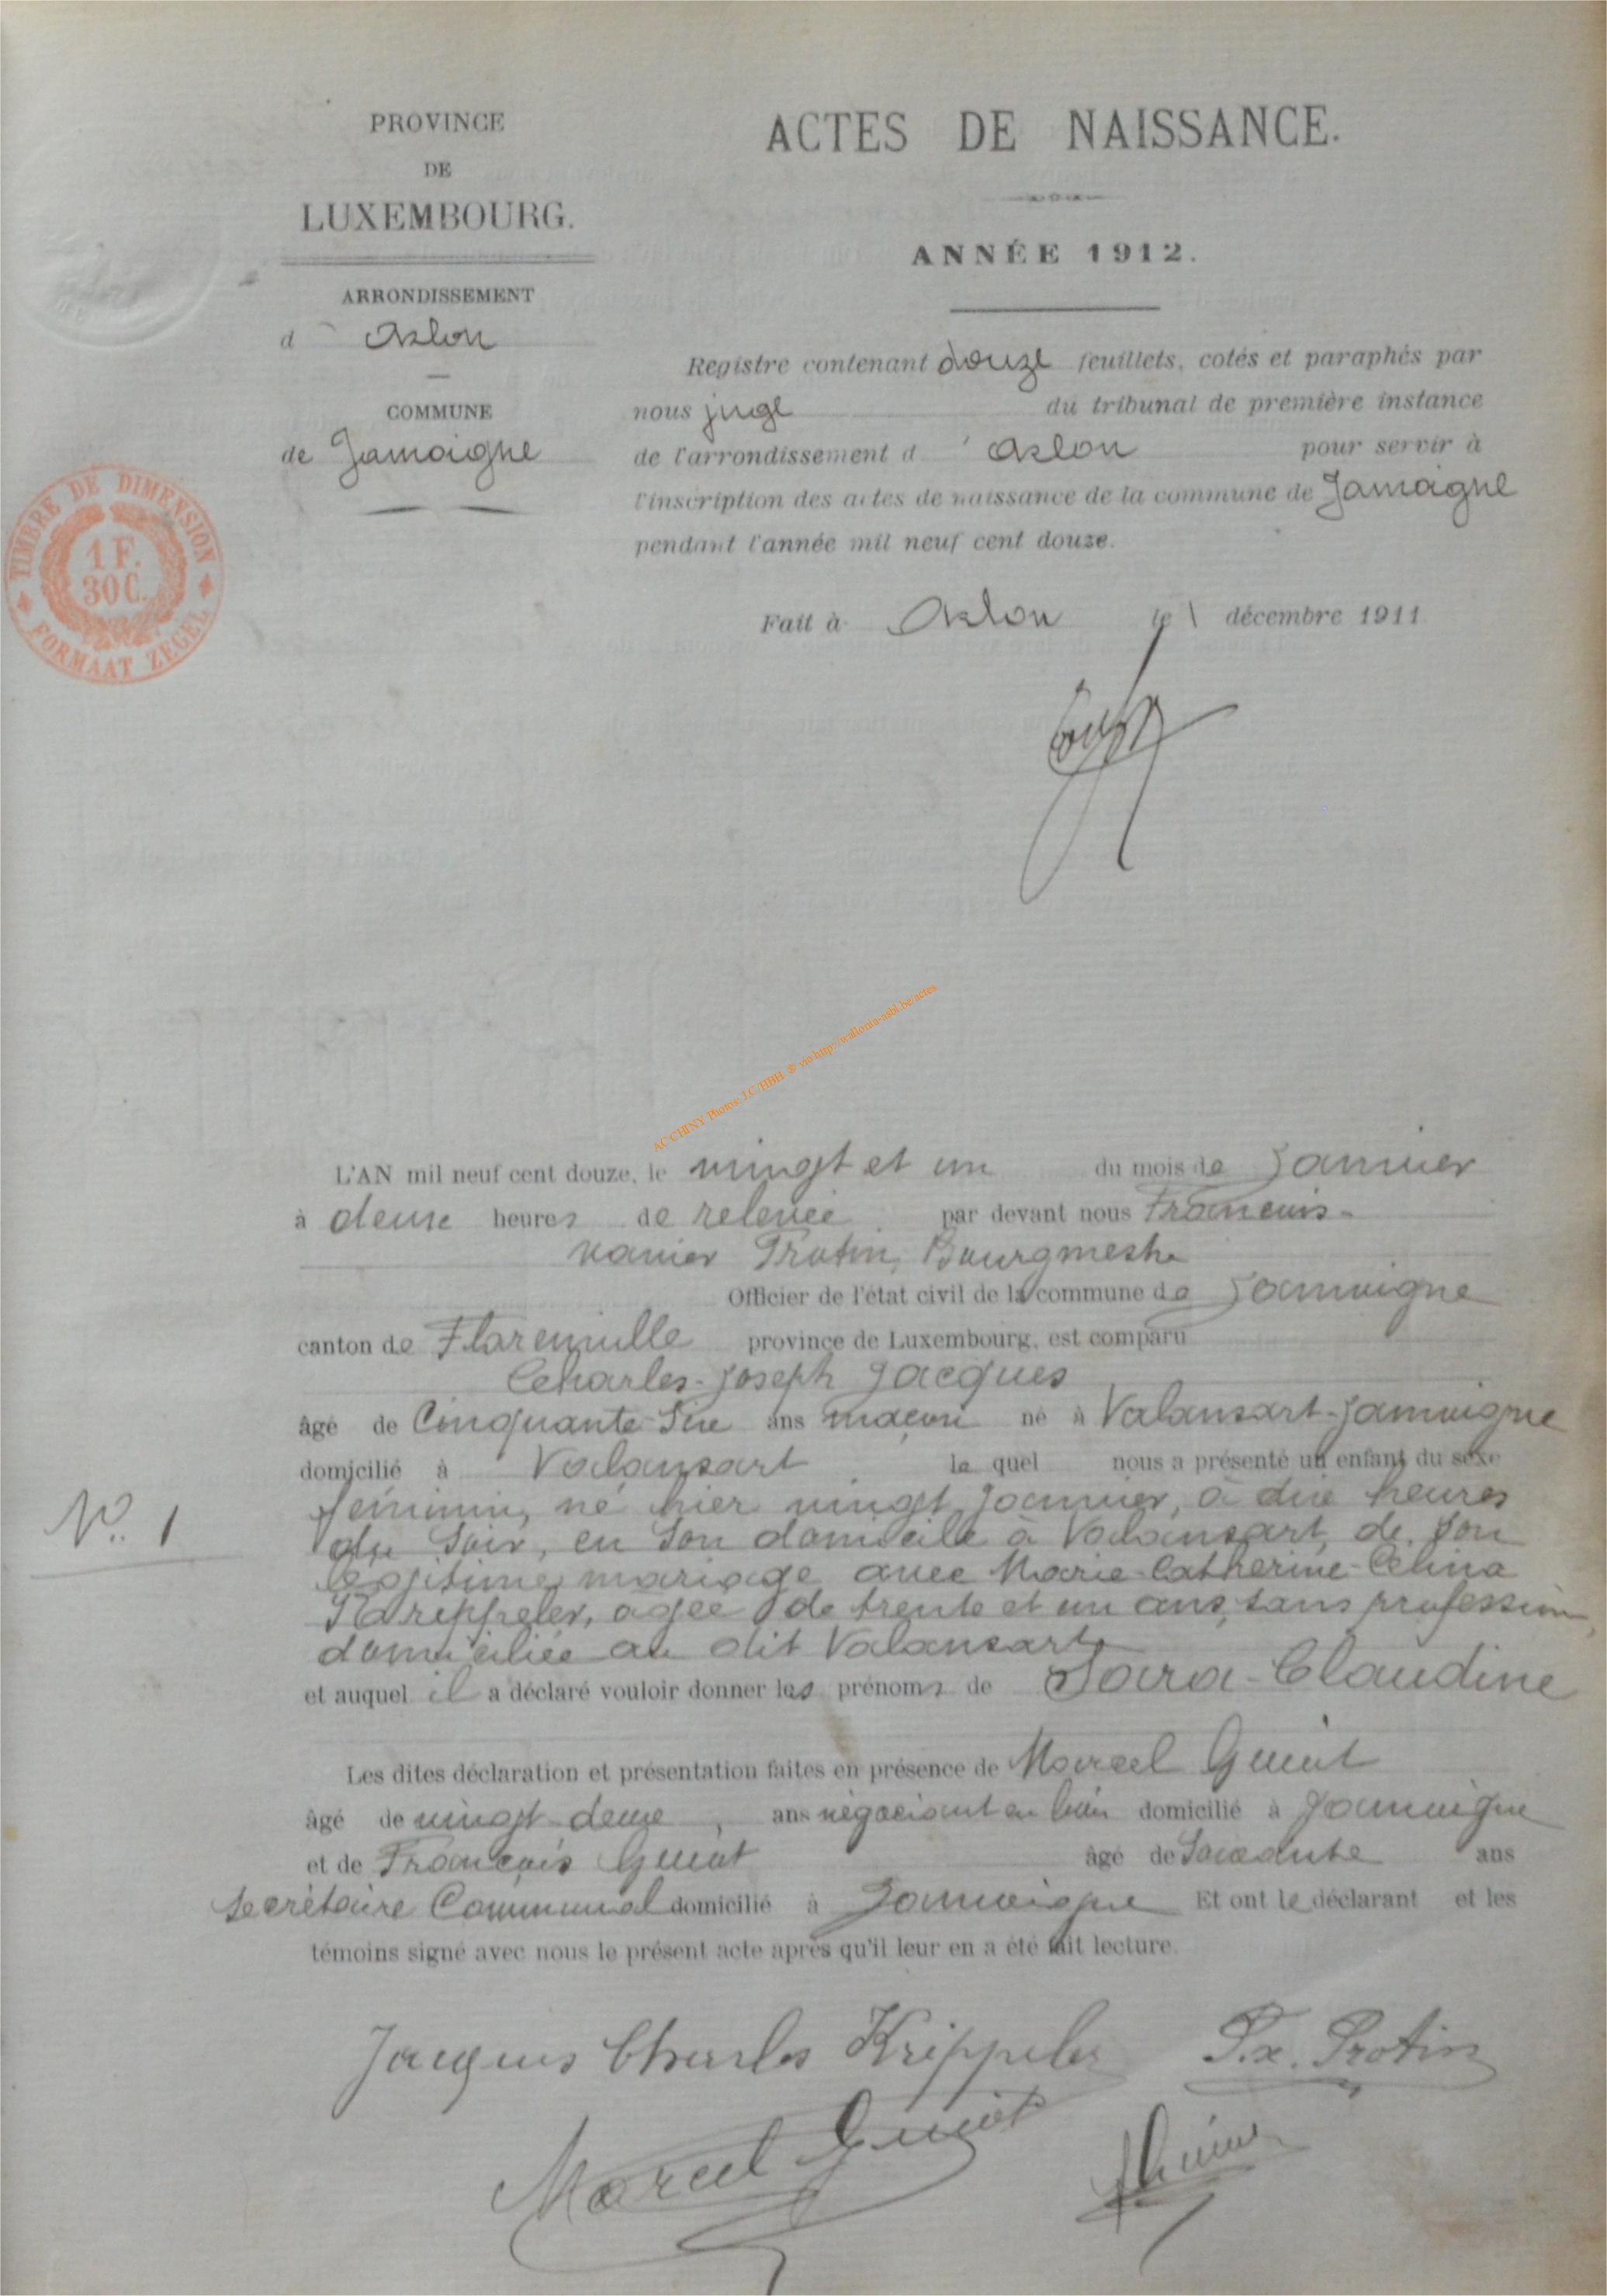 PROVINCE
DE
LUXEMBOURG.
ARRONDISSEMENT
d'Arlon
COMMUNE
de Jamoigne
TIMBRE DE DIMENSION
1 F.
30 C.
FORMAAT ZEGEL
ACTES DE NAISSANCE.
ANNÉE 1912.
Registre contenant douze feuillets, cotés et paraphés par
nous juge du tribunal de première instance
de l'arrondissement d'Arlon pour servir à
l'inscription des actes de naissance de la commune de Jamoigne
pendant l'année mil neuf cent douze.
Fait à Arlon le 1 décembre 1911
AC CHINY Photos J.C/HBH @ via http://wallonia-asbl.be/actes
L'AN mil neuf cent douze, le vingt et un du mois de Janvier
à deux heures de relevée par devant nous François-
xavier Protin, Bourgmestre
Officier de l'état civil de la commune de Jamoigne
canton de Florenville province de Luxembourg, est comparu
Charles-Joseph Jacques
âgé de Cinquante Six ans maçon né à Valansart-Jamoigne
domicilié à Valansart le quel nous a présenté un enfant du sexe
N° 1
féminin, né hier vingt Janvier, à dix heures
du Soir, en Son domicile à Valansart, de Son
légitime mariage avec Marie-Catherine-Célina
Krippeler, agée de trente et un ans, sans profession,
domiciliée au dit Valansart
et auquel il a déclaré vouloir donner les prénoms de Sara-Claudine
Les dites déclaration et présentation faites en présence de Marcel Guiot
âgé de vingt-deux, ans négociant en domicilié à Jamoigne
et de François Guiot âgé de Soixante ans
Secrétaire Communal domicilié à Jamoigne Et ont le déclarant et les
témoins signé avec nous le présent acte après qu'il leur en a été fait lecture.
Jacques Charles Krippeler F.x. Protin
Marcel Guiot